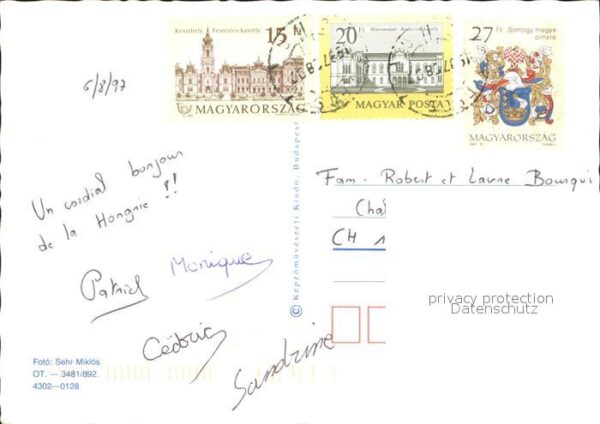 Keszthely Festetics-kastély
15 Ft
MAGYARORSZÁG
20 Ft
MAGYAR POSTA
27 Ft Somogy megye
címere
MAGYARORSZÁG
6/8/97
Un cordial bonjour
de la Hongrie !!
Patrick
Monique
Cédric
Sandrine
Foto: Sehr Miklós
OT. — 3481/892.
4302—0128
© Képzőművészeti Kiadó, Budapest
Fam. Robert et Laure Bourqui
CH 1
privacy protection
Datenschutz